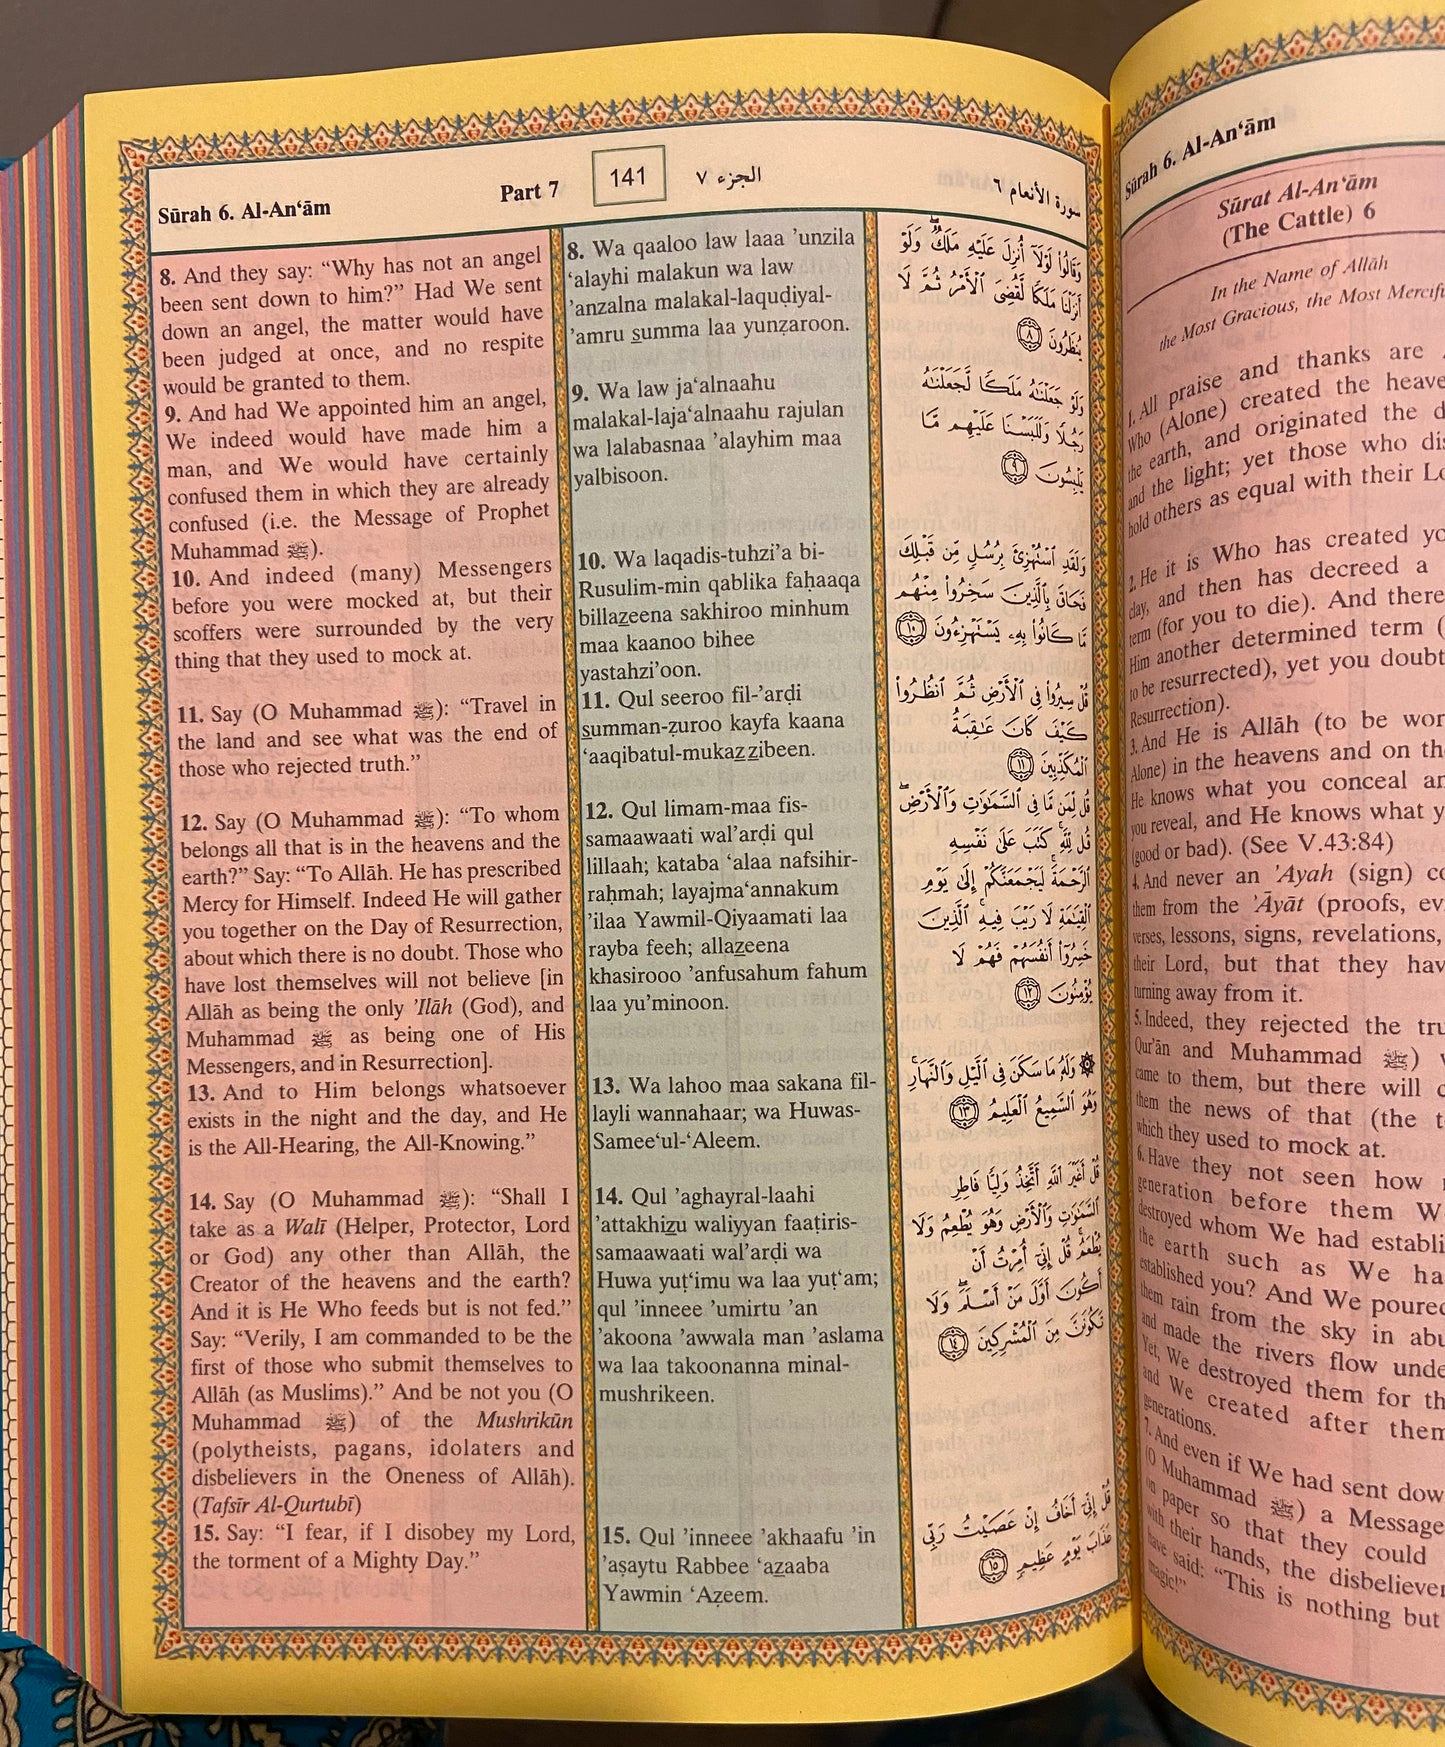 Sūrah 6. Al-An‘ām
Part 7
141
الجزء ٧
سورة الأنعام ٦
8. And they say: “Why has not an angel
been sent down to him?” Had We sent
down an angel, the matter would have
been judged at once, and no respite
would be granted to them.
9. And had We appointed him an angel,
We indeed would have made him a
man, and We would have certainly
confused them in which they are already
confused (i.e. the Message of Prophet
Muhammad ﷺ).
10. And indeed (many) Messengers
before you were mocked at, but their
scoffers were surrounded by the very
thing that they used to mock at.
11. Say (O Muhammad ﷺ): “Travel in
the land and see what was the end of
those who rejected truth.”
12. Say (O Muhammad ﷺ): “To whom
belongs all that is in the heavens and the
earth?” Say: “To Allāh. He has prescribed
Mercy for Himself. Indeed He will gather
you together on the Day of Resurrection,
about which there is no doubt. Those who
have lost themselves will not believe [in
Allāh as being the only ’Ilāh (God), and
Muhammad ﷺ as being one of His
Messengers, and in Resurrection].
13. And to Him belongs whatsoever
exists in the night and the day, and He
is the All-Hearing, the All-Knowing.”
14. Say (O Muhammad ﷺ): “Shall I
take as a Walī (Helper, Protector, Lord
or God) any other than Allāh, the
Creator of the heavens and the earth?
And it is He Who feeds but is not fed.”
Say: “Verily, I am commanded to be the
first of those who submit themselves to
Allāh (as Muslims).” And be not you (O
Muhammad ﷺ) of the Mushrikūn
(polytheists, pagans, idolaters and
disbelievers in the Oneness of Allāh).
(Tafsīr Al-Qurtubī)
15. Say: “I fear, if I disobey my Lord,
the torment of a Mighty Day.”
8. Wa qaaloo law laaa ’unzila
‘alayhi malakun wa law
’anzalna malakal-laquḍiyal-
’amru summa laa yunẓaroon.
9. Wa law ja‘alnaahu
malakal-laja‘alnaahu rajulan
wa lalabasnaa ’alayhim maa
yalbisoon.
10. Wa laqadis-tuhzi’a bi-
Rusulim-min qablika faḥaaqa
billazeena sakhiroo minhum
maa kaanoo bihee
yastahzi’oon.
11. Qul seeroo fil-’arḍi
summan-ẓuroo kayfa kaana
‘aaqibatul-mukazzibeen.
12. Qul limam-maa fis-
samaawaati wal’arḍi qul
lillaah; kataba ‘alaa nafsihir-
raḥmah; layajma‘annakum
’ilaa Yawmil-Qiyaamati laa
rayba feeh; allazeena
khasirooo ’anfusahum fahum
laa yu’minoon.
13. Wa lahoo maa sakana fil-
layli wannahaar; wa Huwas-
Samee‘ul-‘Aleem.
14. Qul ’aghayral-laahi
’attakhizu waliyyan faaṭiris-
samaawaati wal’arḍi wa
Huwa yuṭ‘imu wa laa yuṭ‘am;
qul ’inneee ’umirtu ’an
’akoona ’awwala man ’aslama
wa laa takoonanna minal-
mushrikeen.
15. Qul ’inneee ’akhaafu ’in
’aṣaytu Rabbee ‘azaaba
Yawmin ‘Aẓeem.
وَقَالُوا۟ لَوْلَآ أُنزِلَ عَلَيْهِ مَلَكٌ ۖ وَلَوْ
أَنزَلْنَا مَلَكًا لَّقُضِىَ ٱلْأَمْرُ ثُمَّ لَا
يُنظَرُونَ ٨
وَلَوْ جَعَلْنَٰهُ مَلَكًا لَّجَعَلْنَٰهُ
رَجُلًا وَلَلَبَسْنَا عَلَيْهِم مَّا
يَلْبِسُونَ ٩
وَلَقَدِ ٱسْتُهْزِئَ بِرُسُلٍ مِّن قَبْلِكَ
فَحَاقَ بِٱلَّذِينَ سَخِرُوا۟ مِنْهُم
مَّا كَانُوا۟ بِهِۦ يَسْتَهْزِءُونَ ١٠
قُلْ سِيرُوا۟ فِى ٱلْأَرْضِ ثُمَّ ٱنظُرُوا۟
كَيْفَ كَانَ عَٰقِبَةُ
ٱلْمُكَذِّبِينَ ١١
قُل لِّمَن مَّا فِى ٱلسَّمَٰوَٰتِ وَٱلْأَرْضِ ۖ
قُل لِّلَّهِ ۚ كَتَبَ عَلَىٰ نَفْسِهِ
ٱلرَّحْمَةَ ۚ لَيَجْمَعَنَّكُمْ إِلَىٰ يَوْمِ
ٱلْقِيَٰمَةِ لَا رَيْبَ فِيهِ ۚ ٱلَّذِينَ
خَسِرُوٓا۟ أَنفُسَهُمْ فَهُمْ لَا
يُؤْمِنُونَ ١٢
۞ وَلَهُۥ مَا سَكَنَ فِى ٱلَّيْلِ وَٱلنَّهَارِ ۚ
وَهُوَ ٱلسَّمِيعُ ٱلْعَلِيمُ ١٣
قُلْ أَغَيْرَ ٱللَّهِ أَتَّخِذُ وَلِيًّا فَاطِرِ
ٱلسَّمَٰوَٰتِ وَٱلْأَرْضِ وَهُوَ يُطْعِمُ وَلَا
يُطْعَمُ ۗ قُلْ إِنِّىٓ أُمِرْتُ أَنْ
أَكُونَ أَوَّلَ مَنْ أَسْلَمَ ۖ وَلَا
تَكُونَنَّ مِنَ ٱلْمُشْرِكِينَ ١٤
قُلْ إِنِّىٓ أَخَافُ إِنْ عَصَيْتُ رَبِّى
عَذَابَ يَوْمٍ عَظِيمٍ ١٥
Sūrah 6. Al-An‘ām
Sūrat Al-An‘ām
(The Cattle) 6
In the Name of Allāh
the Most Gracious, the Most
1. All praise and thanks are
Who (Alone) created the
the earth, and originated the
and the light; yet those who
hold others as equal with their
2. He it is Who has created
clay, and then has decreed a
term (for you to die). And
Him another determined term
to be resurrected), yet you
Resurrection).
3. And He is Allāh (to be
Alone) in the heavens and on
He knows what you conceal
you reveal, and He knows what
(good or bad). (See V.43:84)
4. And never an ’Ayah (sign)
them from the ’Āyāt (proofs,
verses, lessons, signs, revelations,
their Lord, but that they
turning away from it.
5. Indeed, they rejected the
Qur’ān and Muhammad ﷺ)
came to them, but there will
them the news of that (the
which they used to mock at.
6. Have they not seen how
generation before them
destroyed whom We had
the earth such as We
established you? And We poured
them rain from the sky in
and made the rivers flow
Yet, We destroyed them for
and We created after
generations.
7. And even if We had sent
(O Muhammad ﷺ) a
on paper so that they could
with their hands, the
have said: “This is nothing but
magic!”